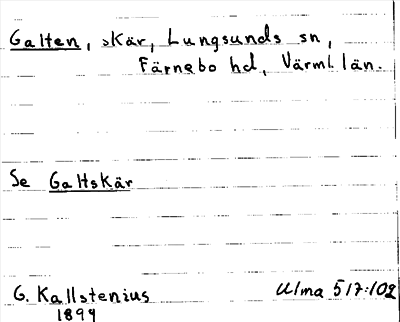 Galten, skär, Lungsunds sn,
Färnebo hd, Värml. län.
Se Galtskär
G. Kallstenius Ulma 517:102
1899